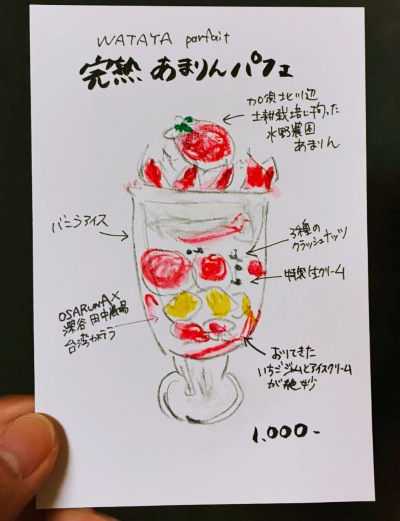 WATAYA parfait
完熟 あまりんパフェ
加須北川辺
土耕栽培に拘った
水野農園
あまりん
バニラアイス
3種の
クラッシュナッツ
特製生クリーム
OSARUNA×
深谷 田中農場
台湾カステラ
おりてきた
いちごジャムとアイスクリーム
が絶妙
1,000-